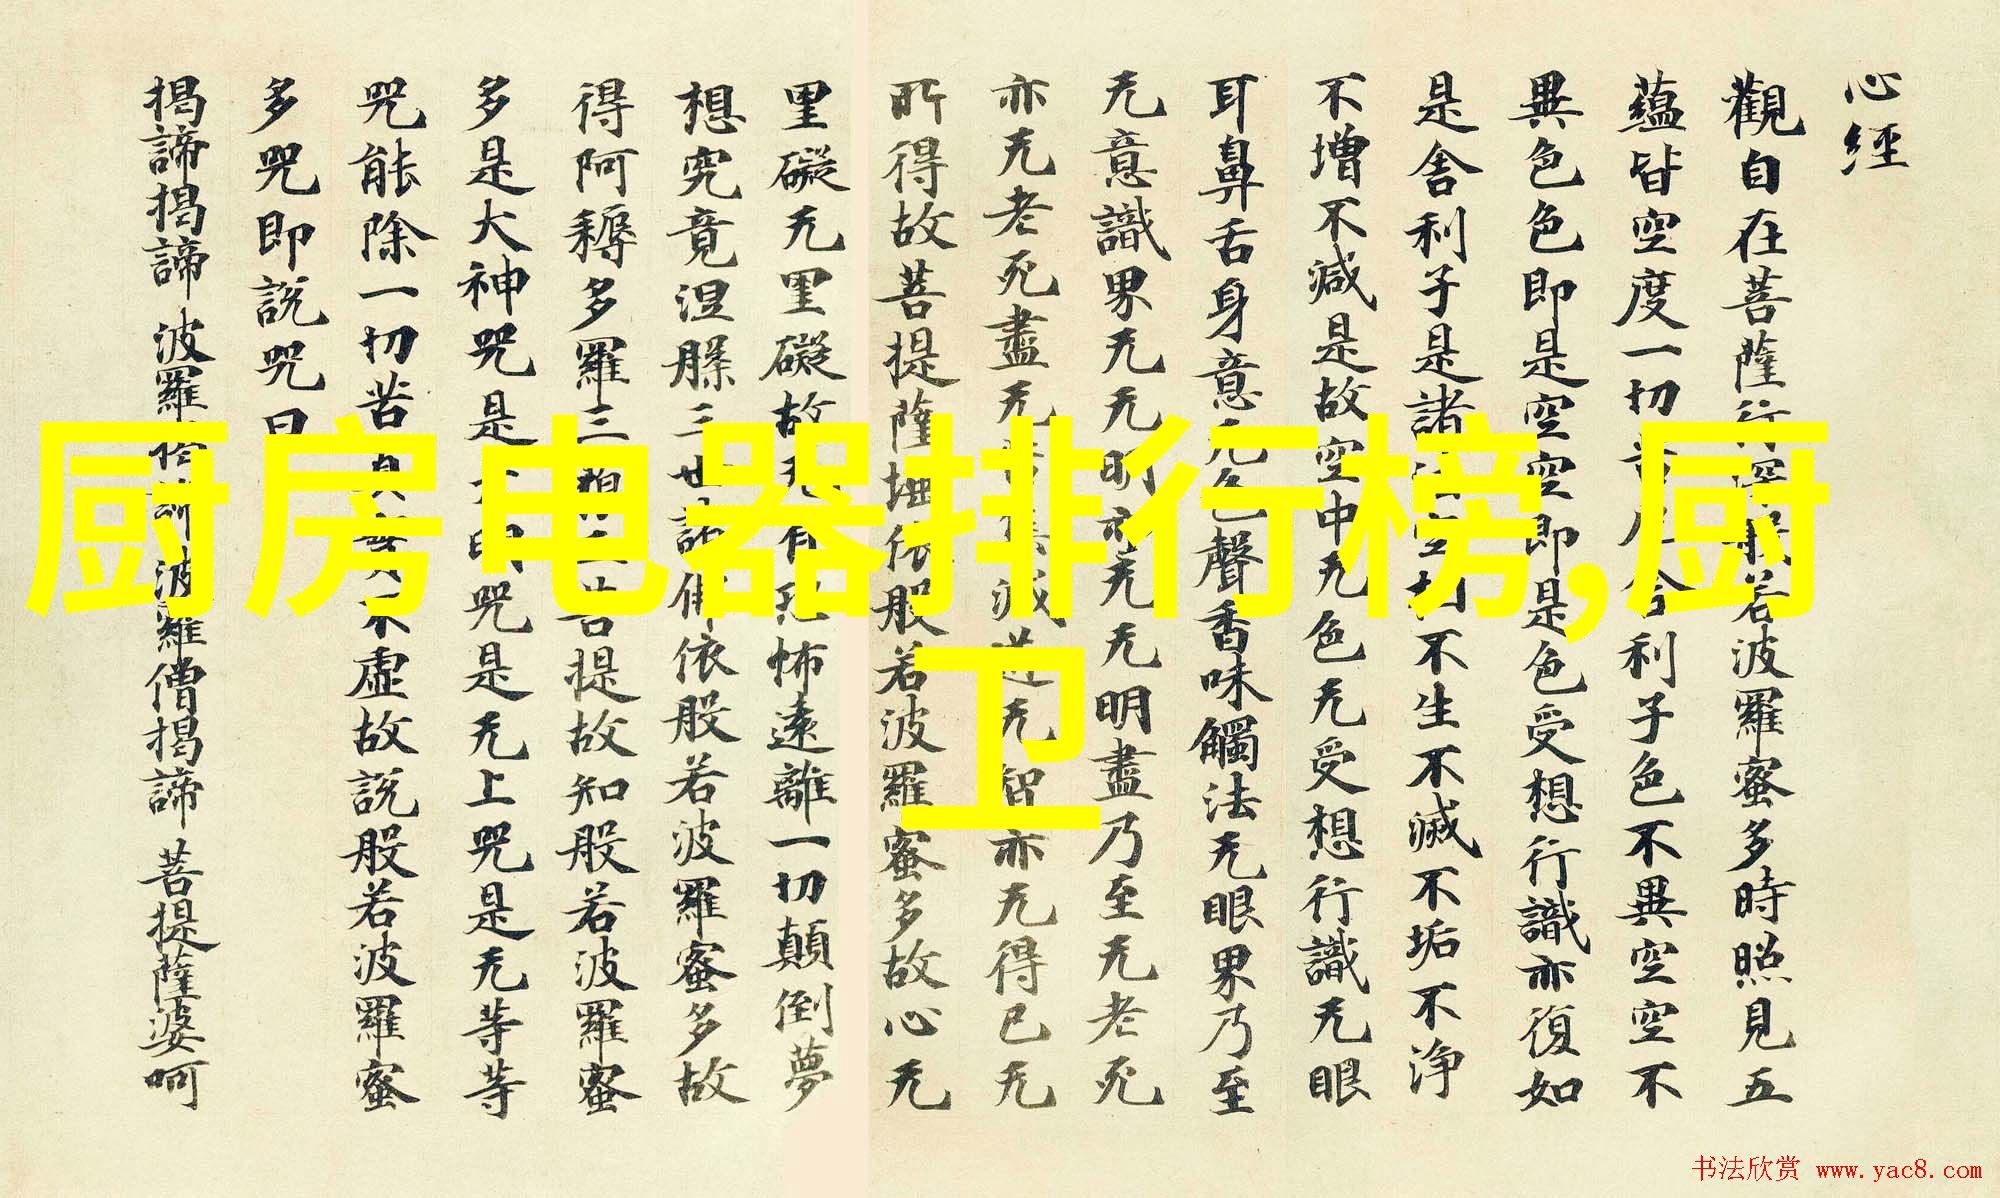 心經
觀自在菩薩行深般若波羅蜜多時照見五
蘊皆空度一切苦厄舍利子色不異空空不
異色色即是空空即是色受想行識亦復如
是舍利子是諸法空相不生不滅不垢不淨
不增不減是故空中无色无受想行識无眼
耳鼻舌身意无色聲香味觸法无眼界乃至
无意識界无无明亦无无明盡乃至无老死
亦无老死盡无苦集滅道无智亦无得已无
所得故菩提薩埵依般若波羅蜜多故心无
罣礙无罣礙故无有恐怖遠離一切顛倒夢
想究竟涅槃三世諸佛依般若波羅蜜多故
得阿耨多羅三藐三菩提故知般若波羅蜜
多是大神咒是大明咒是无上咒是无等等
咒能除一切苦真實不虛故說般若波羅蜜
多咒即說咒曰
揭諦揭諦 波羅揭諦 波羅僧揭諦 菩提薩婆呵
厨房电器排行榜,厨
卫
书法欣赏 www.yac8.com